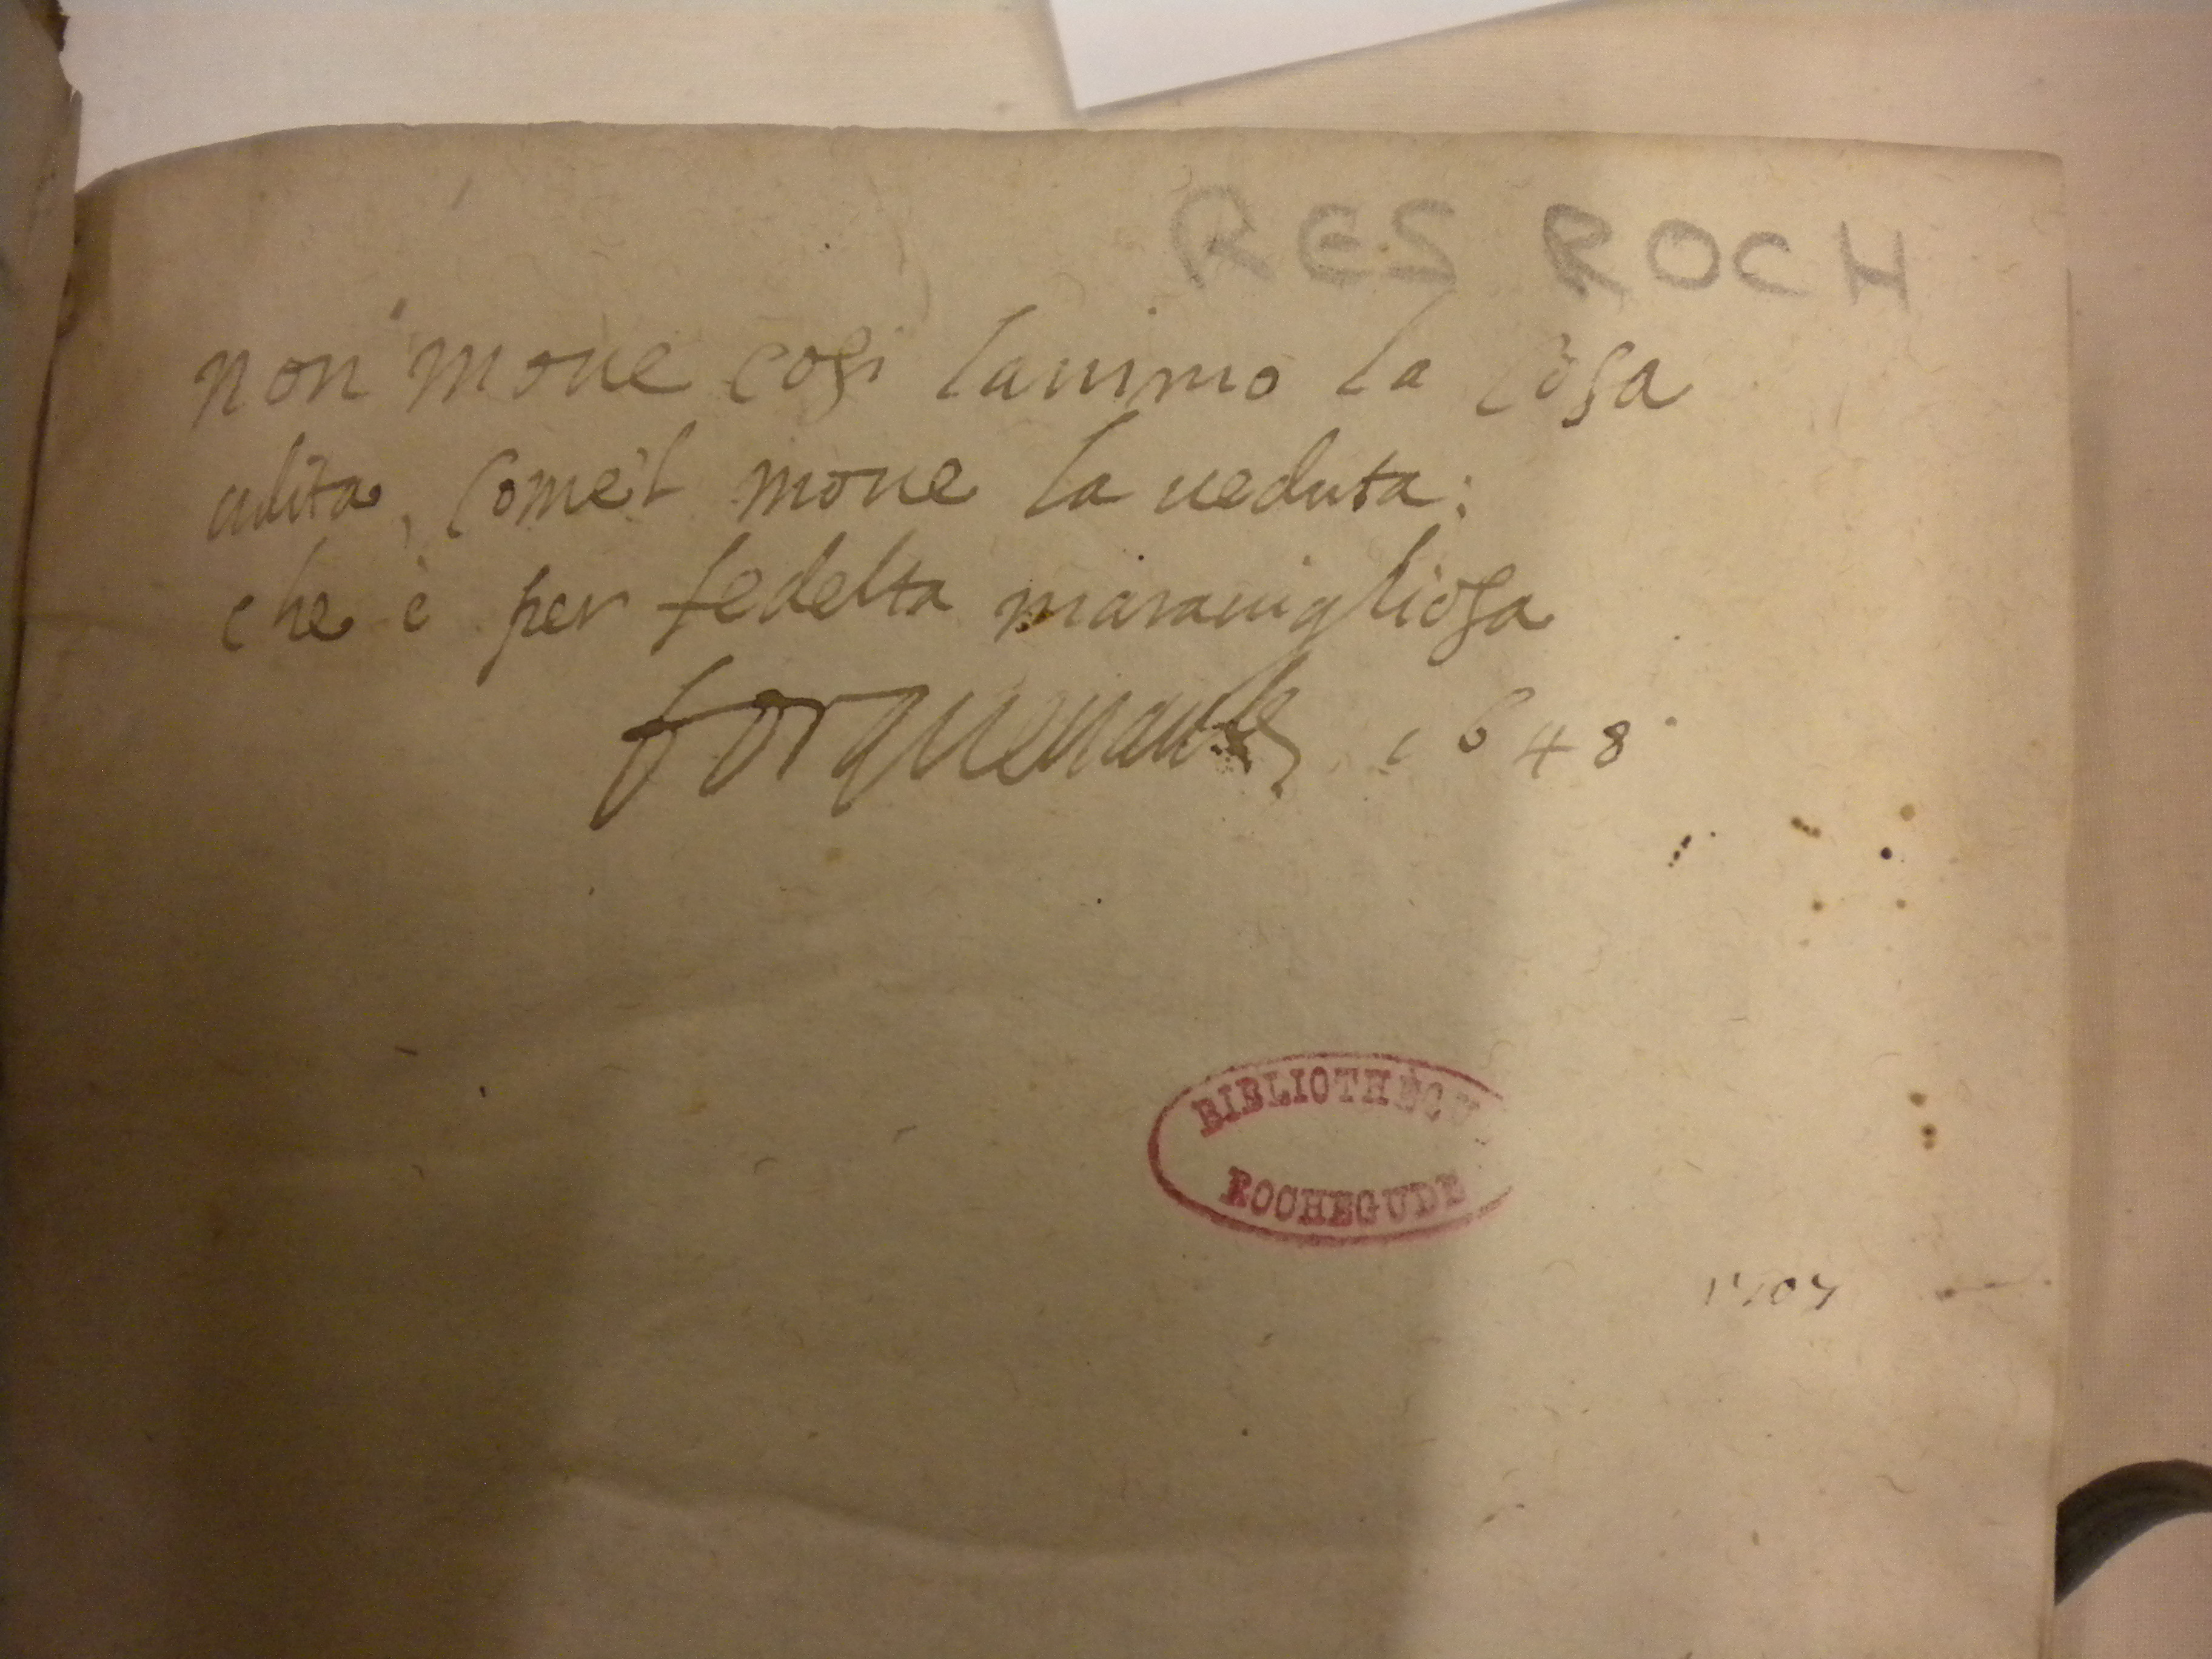 RES ROCH
non moue cosi lanimo la cosa
udita, come'l moue la ueduta:
che è per fedelta marauigliosa
1648
BIBLIOTHÈQU
ROCHEGUDE